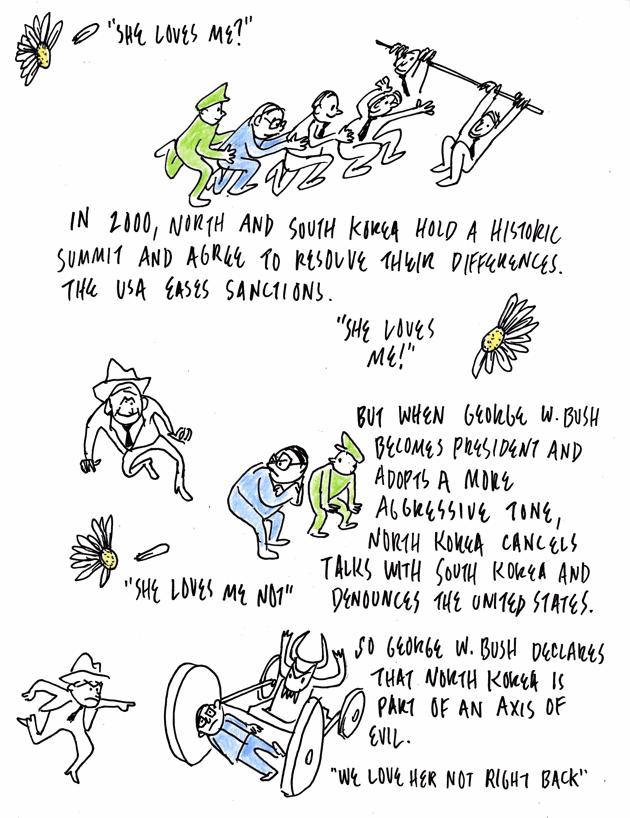 "SHE LOVES ME?"
IN 2000, NORTH AND SOUTH KOREA HOLD A HISTORIC
SUMMIT AND AGREE TO RESOLVE THEIR DIFFERENCES.
THE USA EASES SANCTIONS.
"SHE LOVES
ME!"
BUT WHEN GEORGE W. BUSH
BECOMES PRESIDENT AND
ADOPTS A MORE
AGGRESSIVE TONE,
NORTH KOREA CANCELS
TALKS WITH SOUTH KOREA AND
DENOUNCES THE UNITED STATES.
"SHE LOVES ME NOT"
SO GEORGE W. BUSH DECLARES
THAT NORTH KOREA IS
PART OF AN AXIS OF
EVIL.
"WE LOVE HER NOT RIGHT BACK"